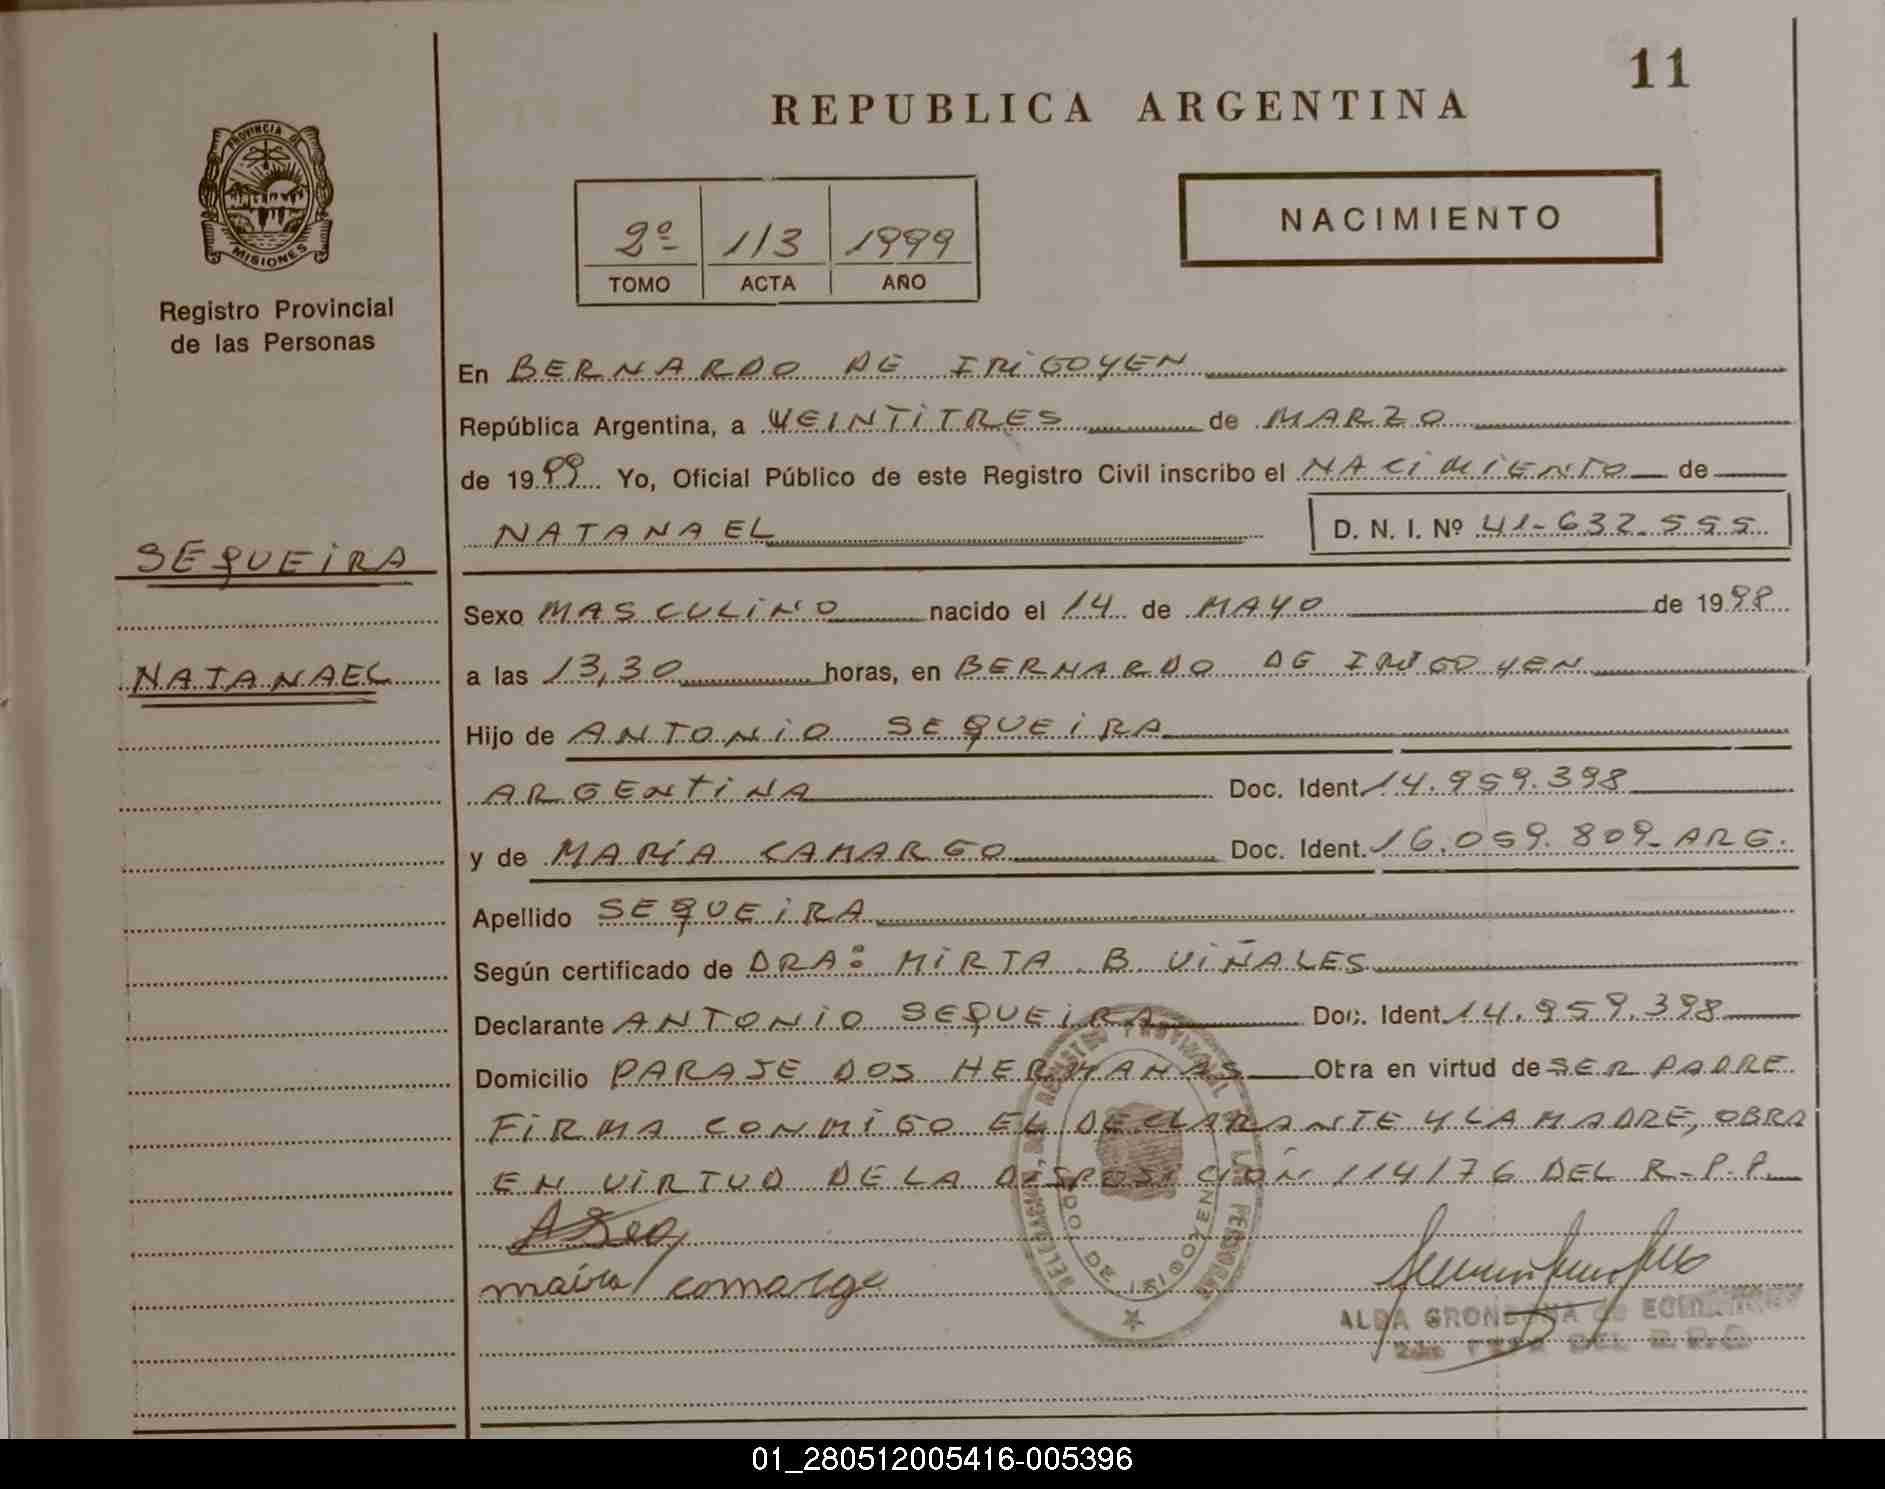 11
REPUBLICA ARGENTINA
PROVINCIA DE
MISIONES
Registro Provincial
de las Personas
2º 113 1999
TOMO ACTA AÑO
NACIMIENTO
En BERNARDO DE IRIGOYEN
República Argentina, a VEINTITRES de MARZO
de 1999 Yo, Oficial Público de este Registro Civil inscribo el NACIMIENTO de
NATANAEL D. N. I. Nº 41-632.555
SEQUEIRA
NATANAEL
Sexo MASCULINO nacido el 14 de MAYO de 1998
a las 13,30 horas, en BERNARDO DE IRIGOYEN
Hijo de ANTONIO SEQUEIRA
ARGENTINA Doc. Ident. 14.959.398
y de MARÍA CAMARGO Doc. Ident. 16.059.809- ARG.
Apellido SEQUEIRA
Según certificado de DRA: MIRTA B VIÑALES
Declarante ANTONIO SEQUEIRA Doc. Ident. 14.959.398
Domicilio PARAJE DOS HERMANAS Obra en virtud de SER PADRE
FIRMA CONMIGO EL DECLARANTE Y LA MADRE, OBRA
EN VIRTUD DE LA DISPOSICIÓN 114/76 DEL R.P.P.
maira comargo
DE IRIGOYEN
ALDA GRONDONA de
DEL R.P.P.
01_280512005416-005396